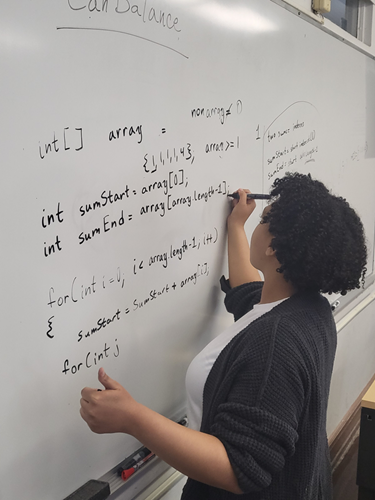 Can Balance
non array ≠ 0
int[] array =
{1,1,1,4}, array >= 1
int sumStart = array[0],
int sumEnd = array[array.length-1];
for(int i=0, i< array.length-1; i++)
{
sumStart = SumStart + array[i],
for(int j
1